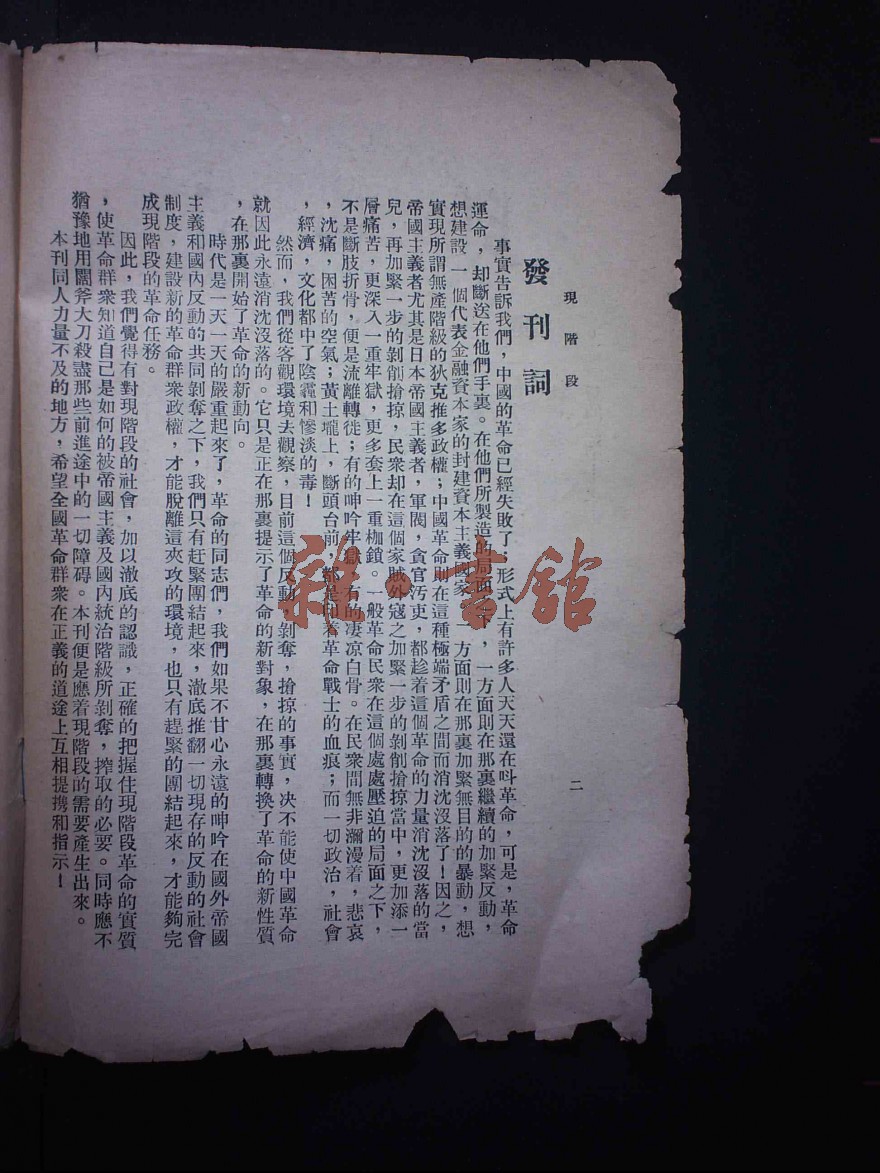 現階段
二
發刊詞
事實告訴我們，中國的革命已經失敗了；形式上有許多人天天還在呌革命，可是，革命
運命，却斷送在他們手裏。在他們所製造的局面下，一方面則在那裏繼續的加緊反動，
想建設一個代表金融資本家的封建資本主義國家，一方面則在那裏加緊無目的的暴動，想
實現所謂無產階級的狄克推多政權；中國革命則在這種極端矛盾之間而消沈沒落了！因之，
帝國主義者尤其是日本帝國主義者，軍閥，貪官汚吏，都趁着這個革命的力量消沈沒落的當
兒，再加緊一步的剝削搶掠，民衆却在這個家賊外寇之加緊一步的剝削搶掠當中，更加添一
層痛苦，更深入一重牢獄，更多套上一重枷鎖。一般革命民衆在這個處處壓迫的局面之下，
不是斷肢折骨，便是流離轉徙；有的呻吟牢獄，有的凄凉白骨。在民衆間無非瀰漫着，悲哀
，沈痛，困苦的空氣；黃土壠上，斷頭台前，都是印着革命戰士的血痕；而一切政治，社會
，經濟，文化都中了陰霾和慘淡的毒！
然而，我們從客觀環境去觀察，目前這個反動，剝奪，搶掠的事實，决不能使中國革命
就因此永遠消沈沒落的。它只是正在那裏提示了革命的新對象，在那裏轉換了革命的新性質
，在那裏開始了革命的新動向。
時代是一天一天的嚴重起來了，革命的同志們，我們如果不甘心永遠的呻吟在國外帝國
主義和國內反動的共同剝奪之下，我們只有赶緊團結起來，澈底推翻一切現存的反動的社會
制度，建設新的革命群衆政權，才能脫離這夾攻的環境，也只有趕緊的團結起來，才能夠完
成現階段的革命任務。
因此，我們覺得有對現階段的社會，加以澈底的認識，正確的把握住現階段革命的實質
，使革命群衆知道自己是如何的被帝國主義及國內統治階級所剝奪，搾取的必要。同時應不
猶豫地用闊斧大刀殺盡那些前進途中的一切障碍。本刊便是應着現階段的需要產生出來。
本刊同人力量不及的地方，希望全國革命群衆在正義的道途上互相提携和指示！
雜·書館